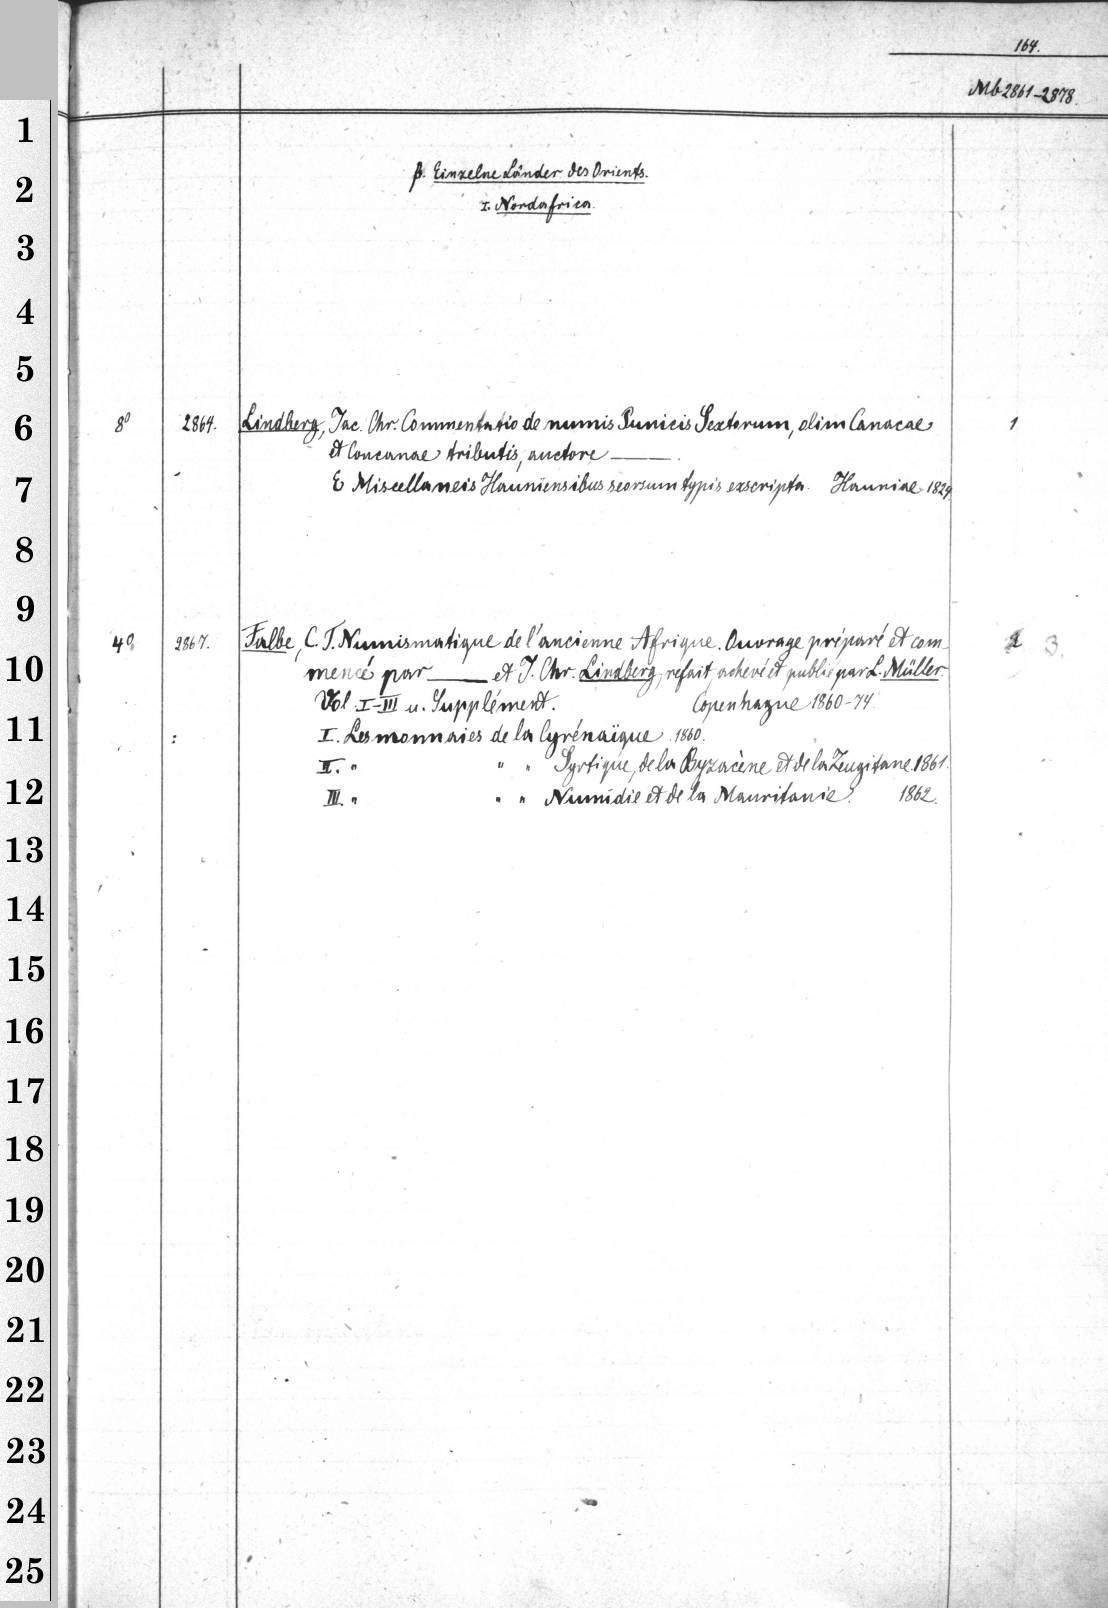 164.
Mb 2861-2878.
β. Einzelne Länder des Orients.
I. Nordafrica.
8° 2864. Lindberg, Jac. Chr. Commentatio de numis Punicis Sextorum, olim Canacae 1
et Concanae tributis, auctore ——.
E Miscellaneis Hauniensibus seorsum typis exscripta. Hauniae 1824.
4° 2867. Falbe, C. T. Numismatique de l'ancienne Afrique. Ouvrage préparé et com- 3.
mencé par —— et J. Chr. Lindberg, refait achevé et publié par L. Müller.
Vol. I-III u. Supplément. Copenhague 1860-74.
I. Les monnaies de la Cyrénaïque. 1860.
II. " " " Syrtique, de la Byzacène et de la Zeugitane. 1861.
III. " " " Numidie et de la Mauritanie. 1862.
1
2
3
4
5
6
7
8
9
10
11
12
13
14
15
16
17
18
19
20
21
22
23
24
25